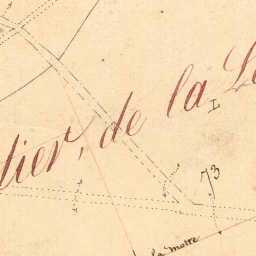 dier, de la L
I
73
la motte